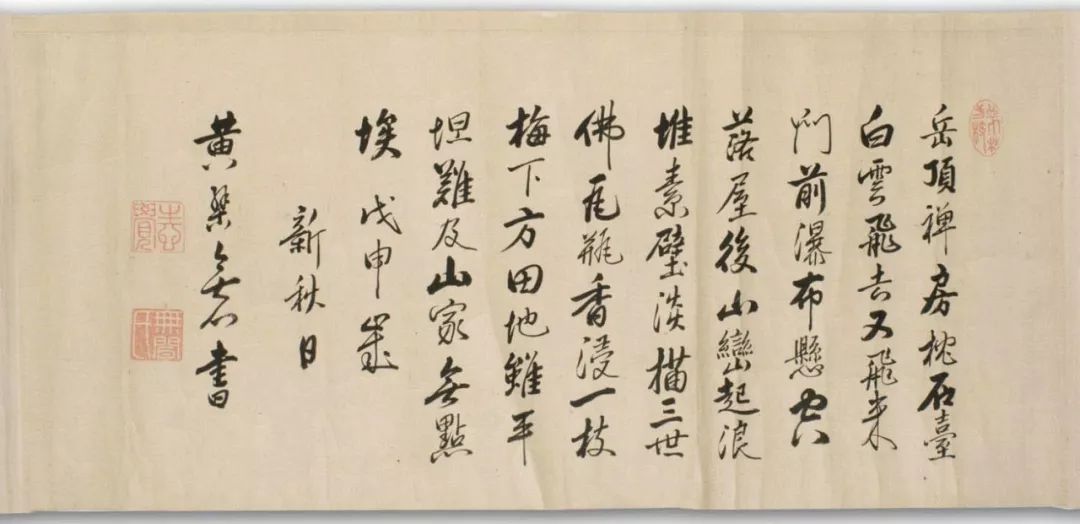 岳頂禅房枕石臺
白雲飛去又飛来
門前瀑布懸空
落屋後山巒起浪
堆素壁淡描三世
佛瓦瓶香浸一枝
梅下方田地雖平
坦難及山家無點
埃 戊申歲
新秋日
黄檗書